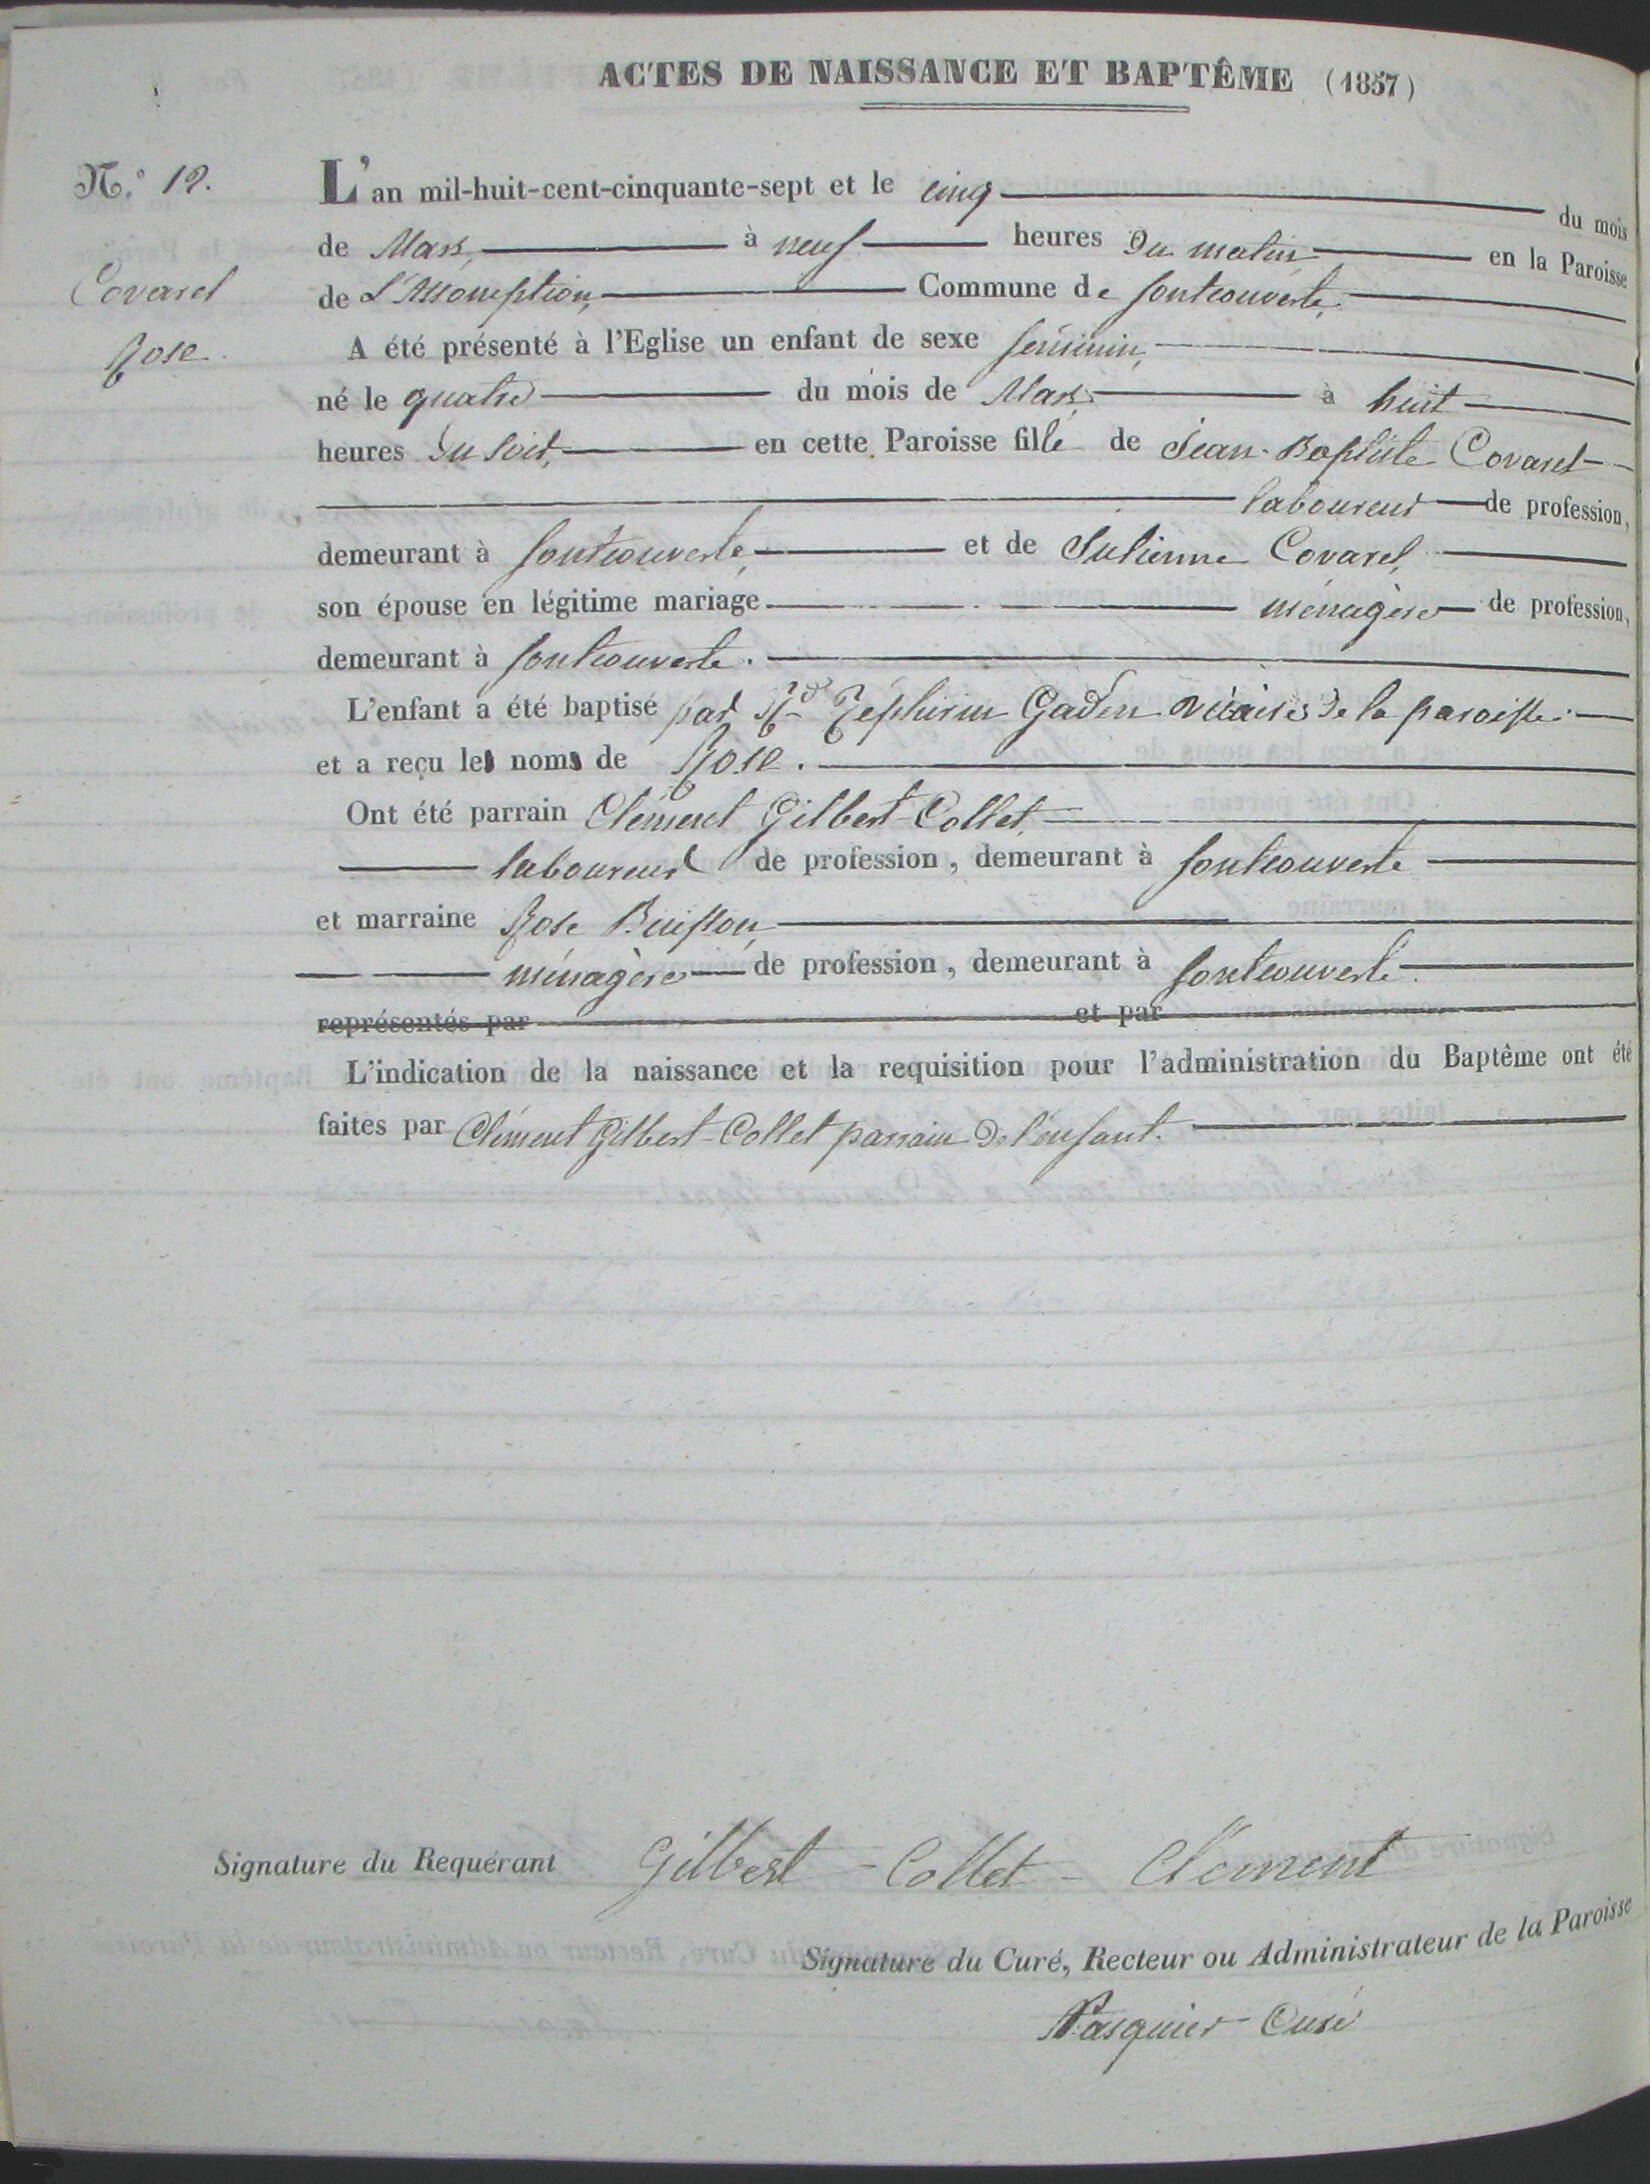 ACTES DE NAISSANCE ET BAPTÊME (1857)
N.° 12.
Covarel
Rose.
L'an mil-huit-cent-cinquante-sept et le cinq du mois
de Mars, à neuf heures du matin en la Paroisse
de L'Assomption, Commune de fontcouverte,
A été présenté à l'Eglise un enfant de sexe féminin,
né le quatre du mois de Mars à huit
heures du soir, en cette Paroisse fille de Jean-Baptiste Covarel
laboureur de profession,
demeurant à fontcouverte, et de Julienne Covarel,
son épouse en légitime mariage ménagère de profession,
demeurant à fontcouverte.
L'enfant a été baptisé par Rd Zéphirin Gaden vicaire de la paroisse.
et a reçu les noms de Rose.
Ont été parrain Clément Gilbert-Collet,
laboureur de profession, demeurant à fontcouverte
et marraine Rose Buisson,
ménagère de profession, demeurant à fontcouverte.
représentés par et par
L'indication de la naissance et la requisition pour l'administration du Baptême ont été
faites par Clément Gilbert-Collet parrain de l'enfant.
Signature du Requérant Gilbert-Collet-Clément
Signature du Curé, Recteur ou Administrateur de la Paroisse
Pasquier Curé